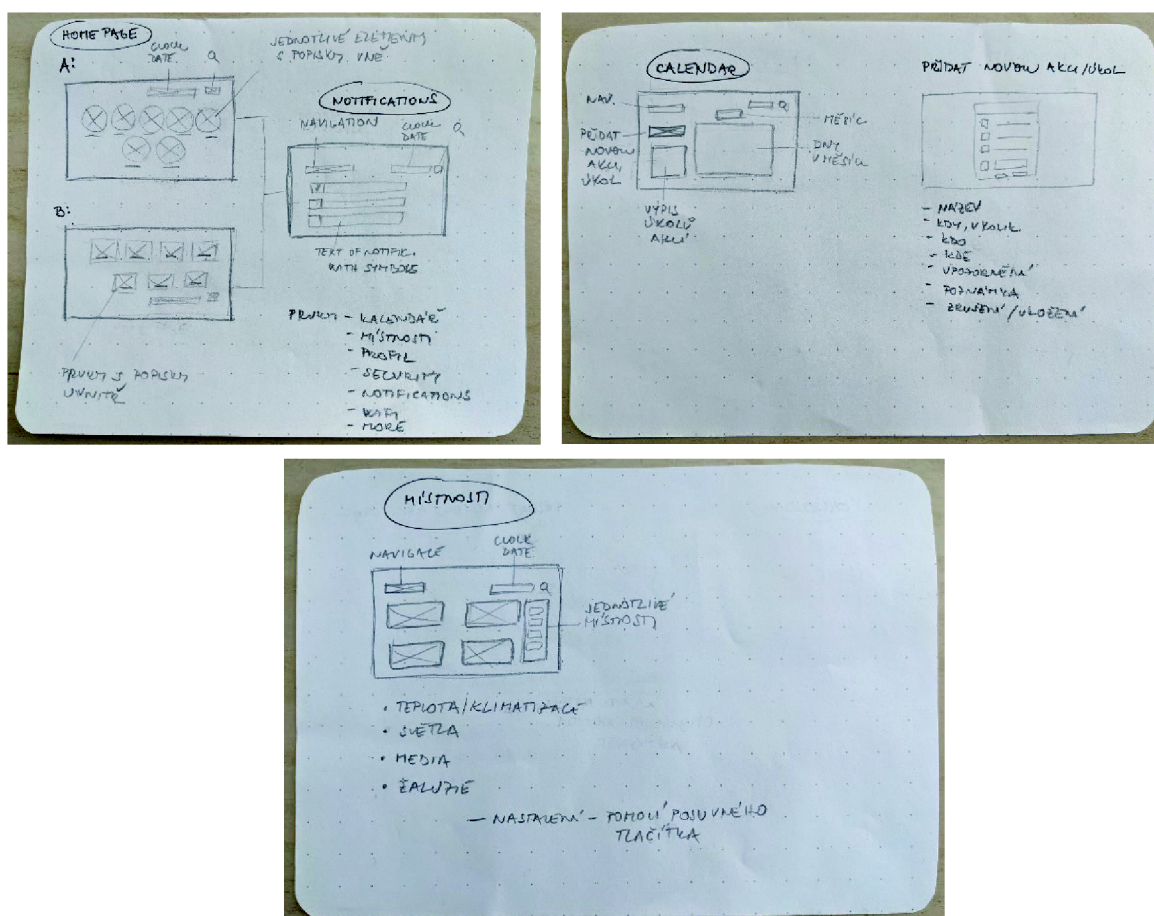 HOME PAGE
A:
CLOCK
DATE
JEDNOTLIVÉ ELEMENTY
S POPISKY VNĚ
NOTIFICATIONS
NAVIGATION
CLOCK
DATE
TEXT OF NOTIFIC.
WITH SYMBOLS
B:
PRVKY S POPISKY
UVNITŘ
PRVKY - KALENDÁŘ
- MÍSTNOSTI
- PROFIL
- SECURITY
- NOTIFICATIONS
- WIFI
- MORE
CALENDAR
NAV.
PŘIDAT
NOVOU
AKCI,
ÚKOL
MĚSÍC
DNY
V MĚSÍC
VÝPIS
ÚKOLŮ
AKCÍ
PŘIDAT NOVOU AKCI/ÚKOL
- NÁZEV
- KDY, V KOLIK
- KDO
- KDE
- UPOZORNĚNÍ
- POZNÁMKA
- ZRUŠENÍ / ULOŽENÍ
MÍSTNOSTI
NAVIGACE
CLOCK
DATE
JEDNOTLIVÉ
MÍSTNOSTI
• TEPLOTA/KLIMATIZACE
• SVĚTLA
• MEDIA
• ŽALUZIE
- NASTAVENÍ - POMOCÍ POSUVNÉHO
TLAČÍTKA